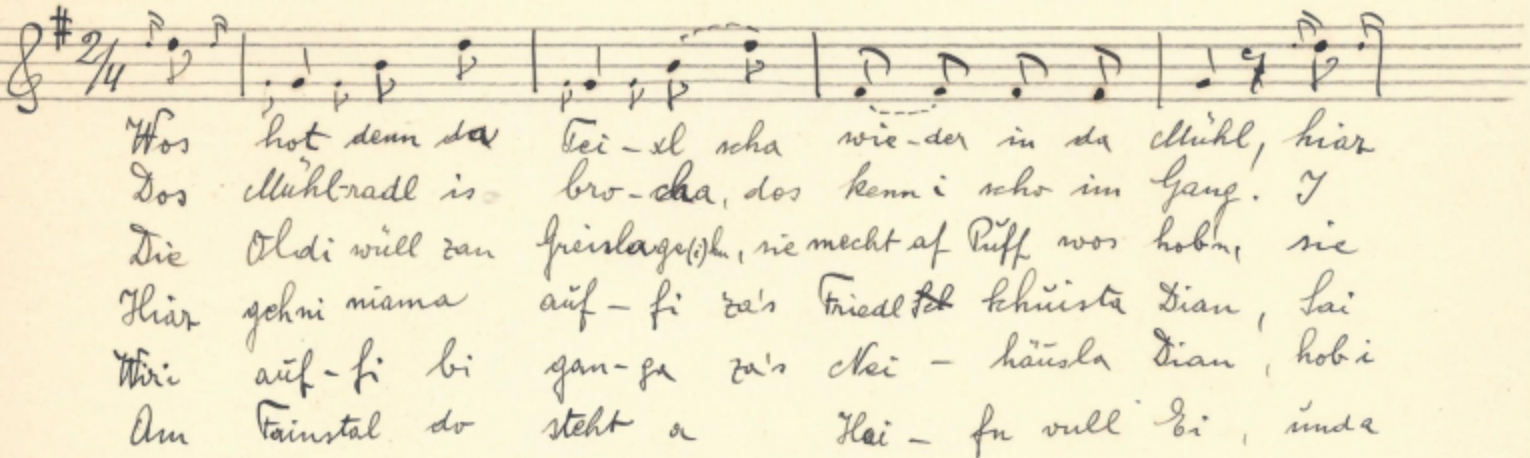 2/4
Wos hot denn da Tei-xl scha wie-der in da Mühl, hiaz
Dos Mühl-radl is bro-cha, dos kenn i scho im Gang. I
Die Oldi wüll zan Greislage(i)hn, sie mecht af Puff wos hobn, sie
Hiaz gehni niama auf-fi za's Friedl khuista Dian, sai
Wiri auf-fi bi gan-ga za's Nei - häusla Dian, hob i
Am Fainstal do steht a Hai - fn vull Ei, und a